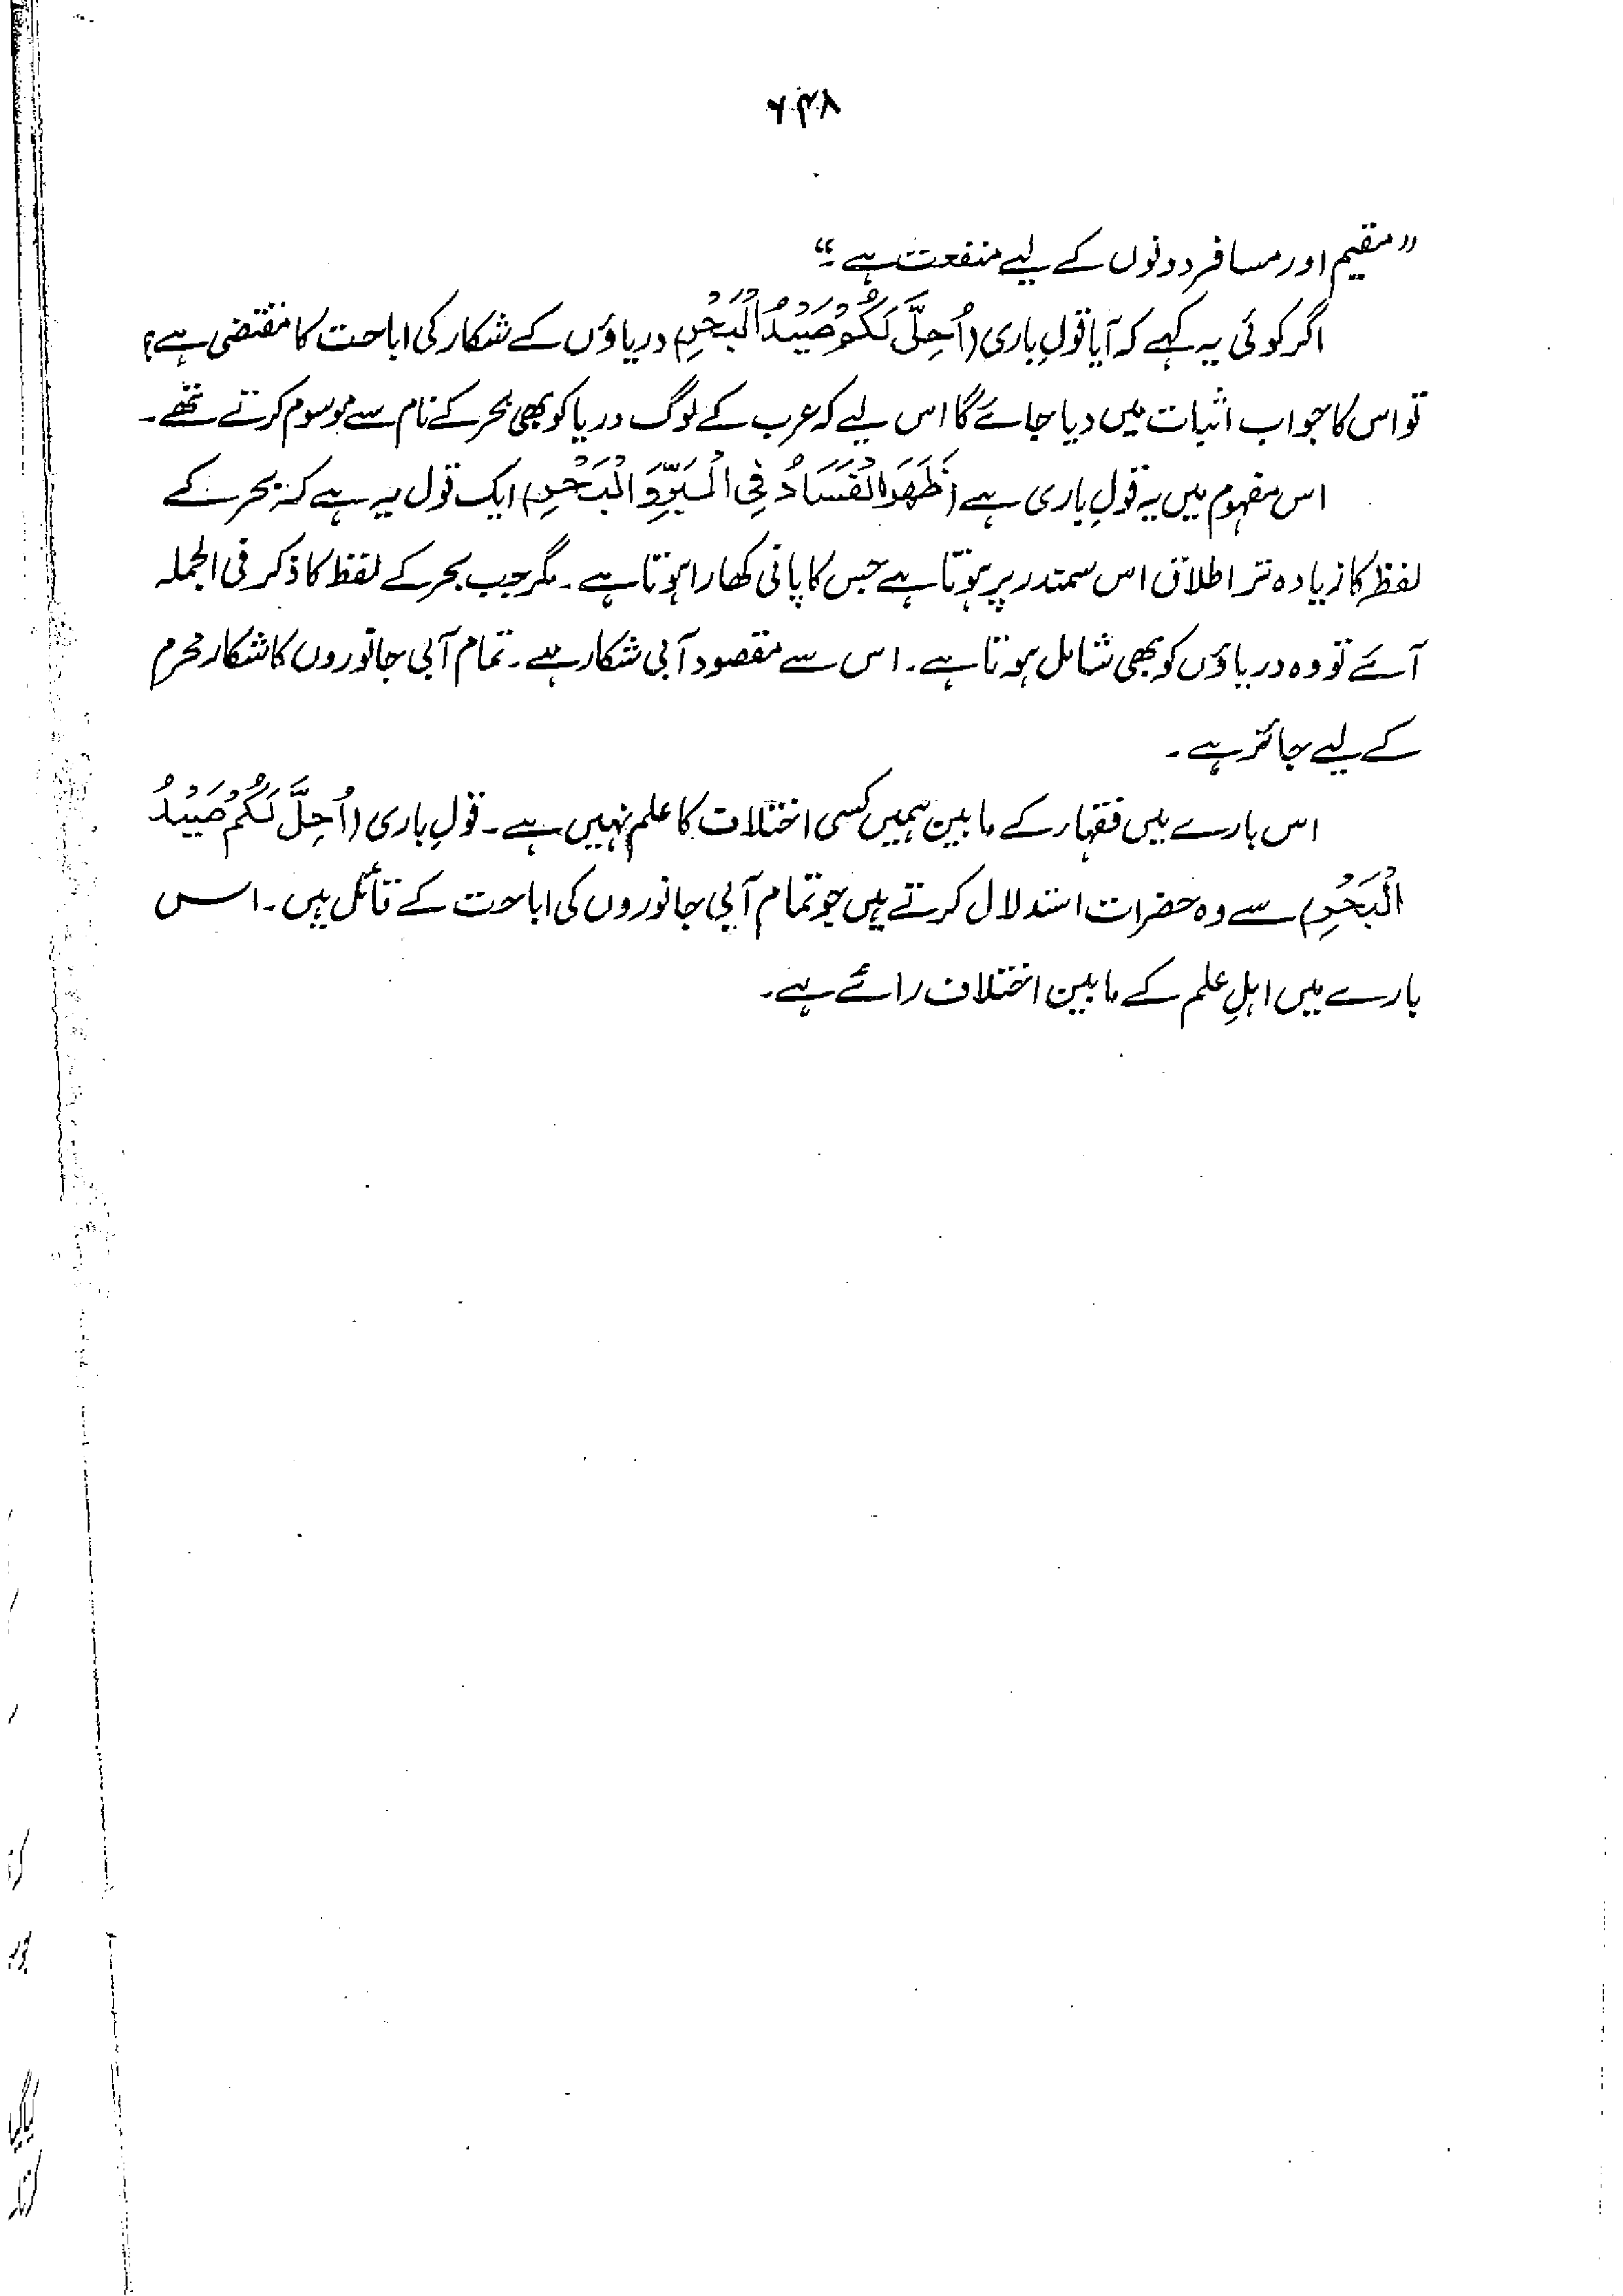 ۶۴۸
”مقیم اور مسافر دونوں کے لیے منفعت ہے۔“
اگر کوئی یہ کہے کہ آیا قولِ باری (اُحِلَّ لَكُمْ صَيْدُ الْبَحْرِ) دریاؤں کے شکار کی اباحت کا مقتضی ہے؟
تو اس کا جواب اثبات میں دیا جائے گا اس لیے کہ عرب کے لوگ دریا کو بھی بحر کے نام سے موسوم کرتے تھے۔
اس مفہوم میں یہ قولِ باری ہے (ظَهَرَ الْفَسَادُ فِي الْبَرِّ وَالْبَحْرِ) ایک قول یہ ہے کہ بحر کے
لفظ کا زیادہ تر اطلاق اس سمندر پر ہوتا ہے جس کا پانی کھارا ہوتا ہے۔ مگر جب بحر کے لفظ کا ذکر فی الجملہ
آئے تو وہ دریاؤں کو بھی شامل ہوتا ہے۔ اس سے مقصود آبی شکار ہے۔ تمام آبی جانوروں کا شکار محرم
کے لیے جائز ہے۔
اس بارے میں فقہاء کے مابین ہمیں کسی اختلاف کا علم نہیں ہے۔ قولِ باری (اُحِلَّ لَكُمْ صَيْدُ
الْبَحْرِ) سے وہ حضرات استدلال کرتے ہیں جو تمام آبی جانوروں کی اباحت کے قائل ہیں۔ اس
بارے میں اہلِ علم کے مابین اختلاف رائے ہے۔